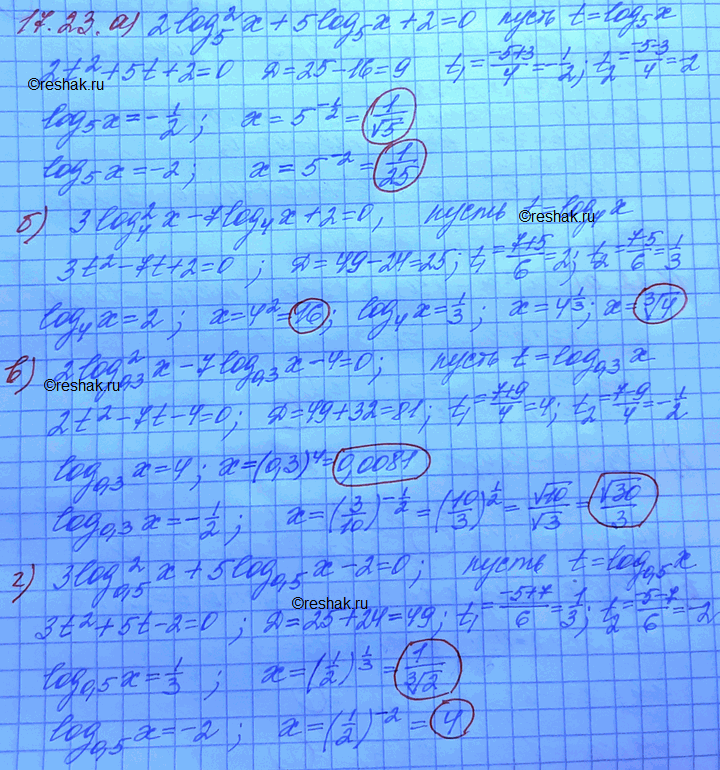 17.23. а) 2log₅²x + 5log₅x + 2 = 0 пусть t = log₅x
2t² + 5t + 2 = 0 D = 25 − 16 = 9 t₁ = (−5+3)/4 = −1/2; t₂ = (−5−3)/4 = −2
©reshak.ru
log₅x = −1/2; x = 5^(−1/2) = 1/√5
log₅x = −2; x = 5^(−2) = 1/25
б) 3log₄²x − 7log₄x + 2 = 0, пусть t = log₄x
©reshak.ru
3t² − 7t + 2 = 0; D = 49 − 24 = 25; t₁ = (7+5)/6 = 2; t₂ = (7−5)/6 = 1/3
log₄x = 2; x = 4² = 16; log₄x = 1/3; x = 4^(1/3); x = ∛4
в) 2log₀,₃²x − 7log₀,₃x − 4 = 0; пусть t = log₀,₃x
©reshak.ru
2t² − 7t − 4 = 0; D = 49 + 32 = 81; t₁ = (7+9)/4 = 4; t₂ = (7−9)/4 = −1/2
log₀,₃x = 4; x = (0,3)⁴ = 0,0081
log₀,₃x = −1/2; x = (3/10)^(−1/2) = (10/3)^(1/2) = √10/√3 = √30/3
г) 3log₀,₅²x + 5log₀,₅x − 2 = 0; пусть t = log₀,₅x
©reshak.ru
3t² + 5t − 2 = 0; D = 25 + 24 = 49; t₁ = (−5+7)/6 = 1/3; t₂ = (−5−7)/6 = −2
log₀,₅x = 1/3; x = (1/2)^(1/3) = 1/∛2
log₀,₅x = −2; x = (1/2)^(−2) = 4